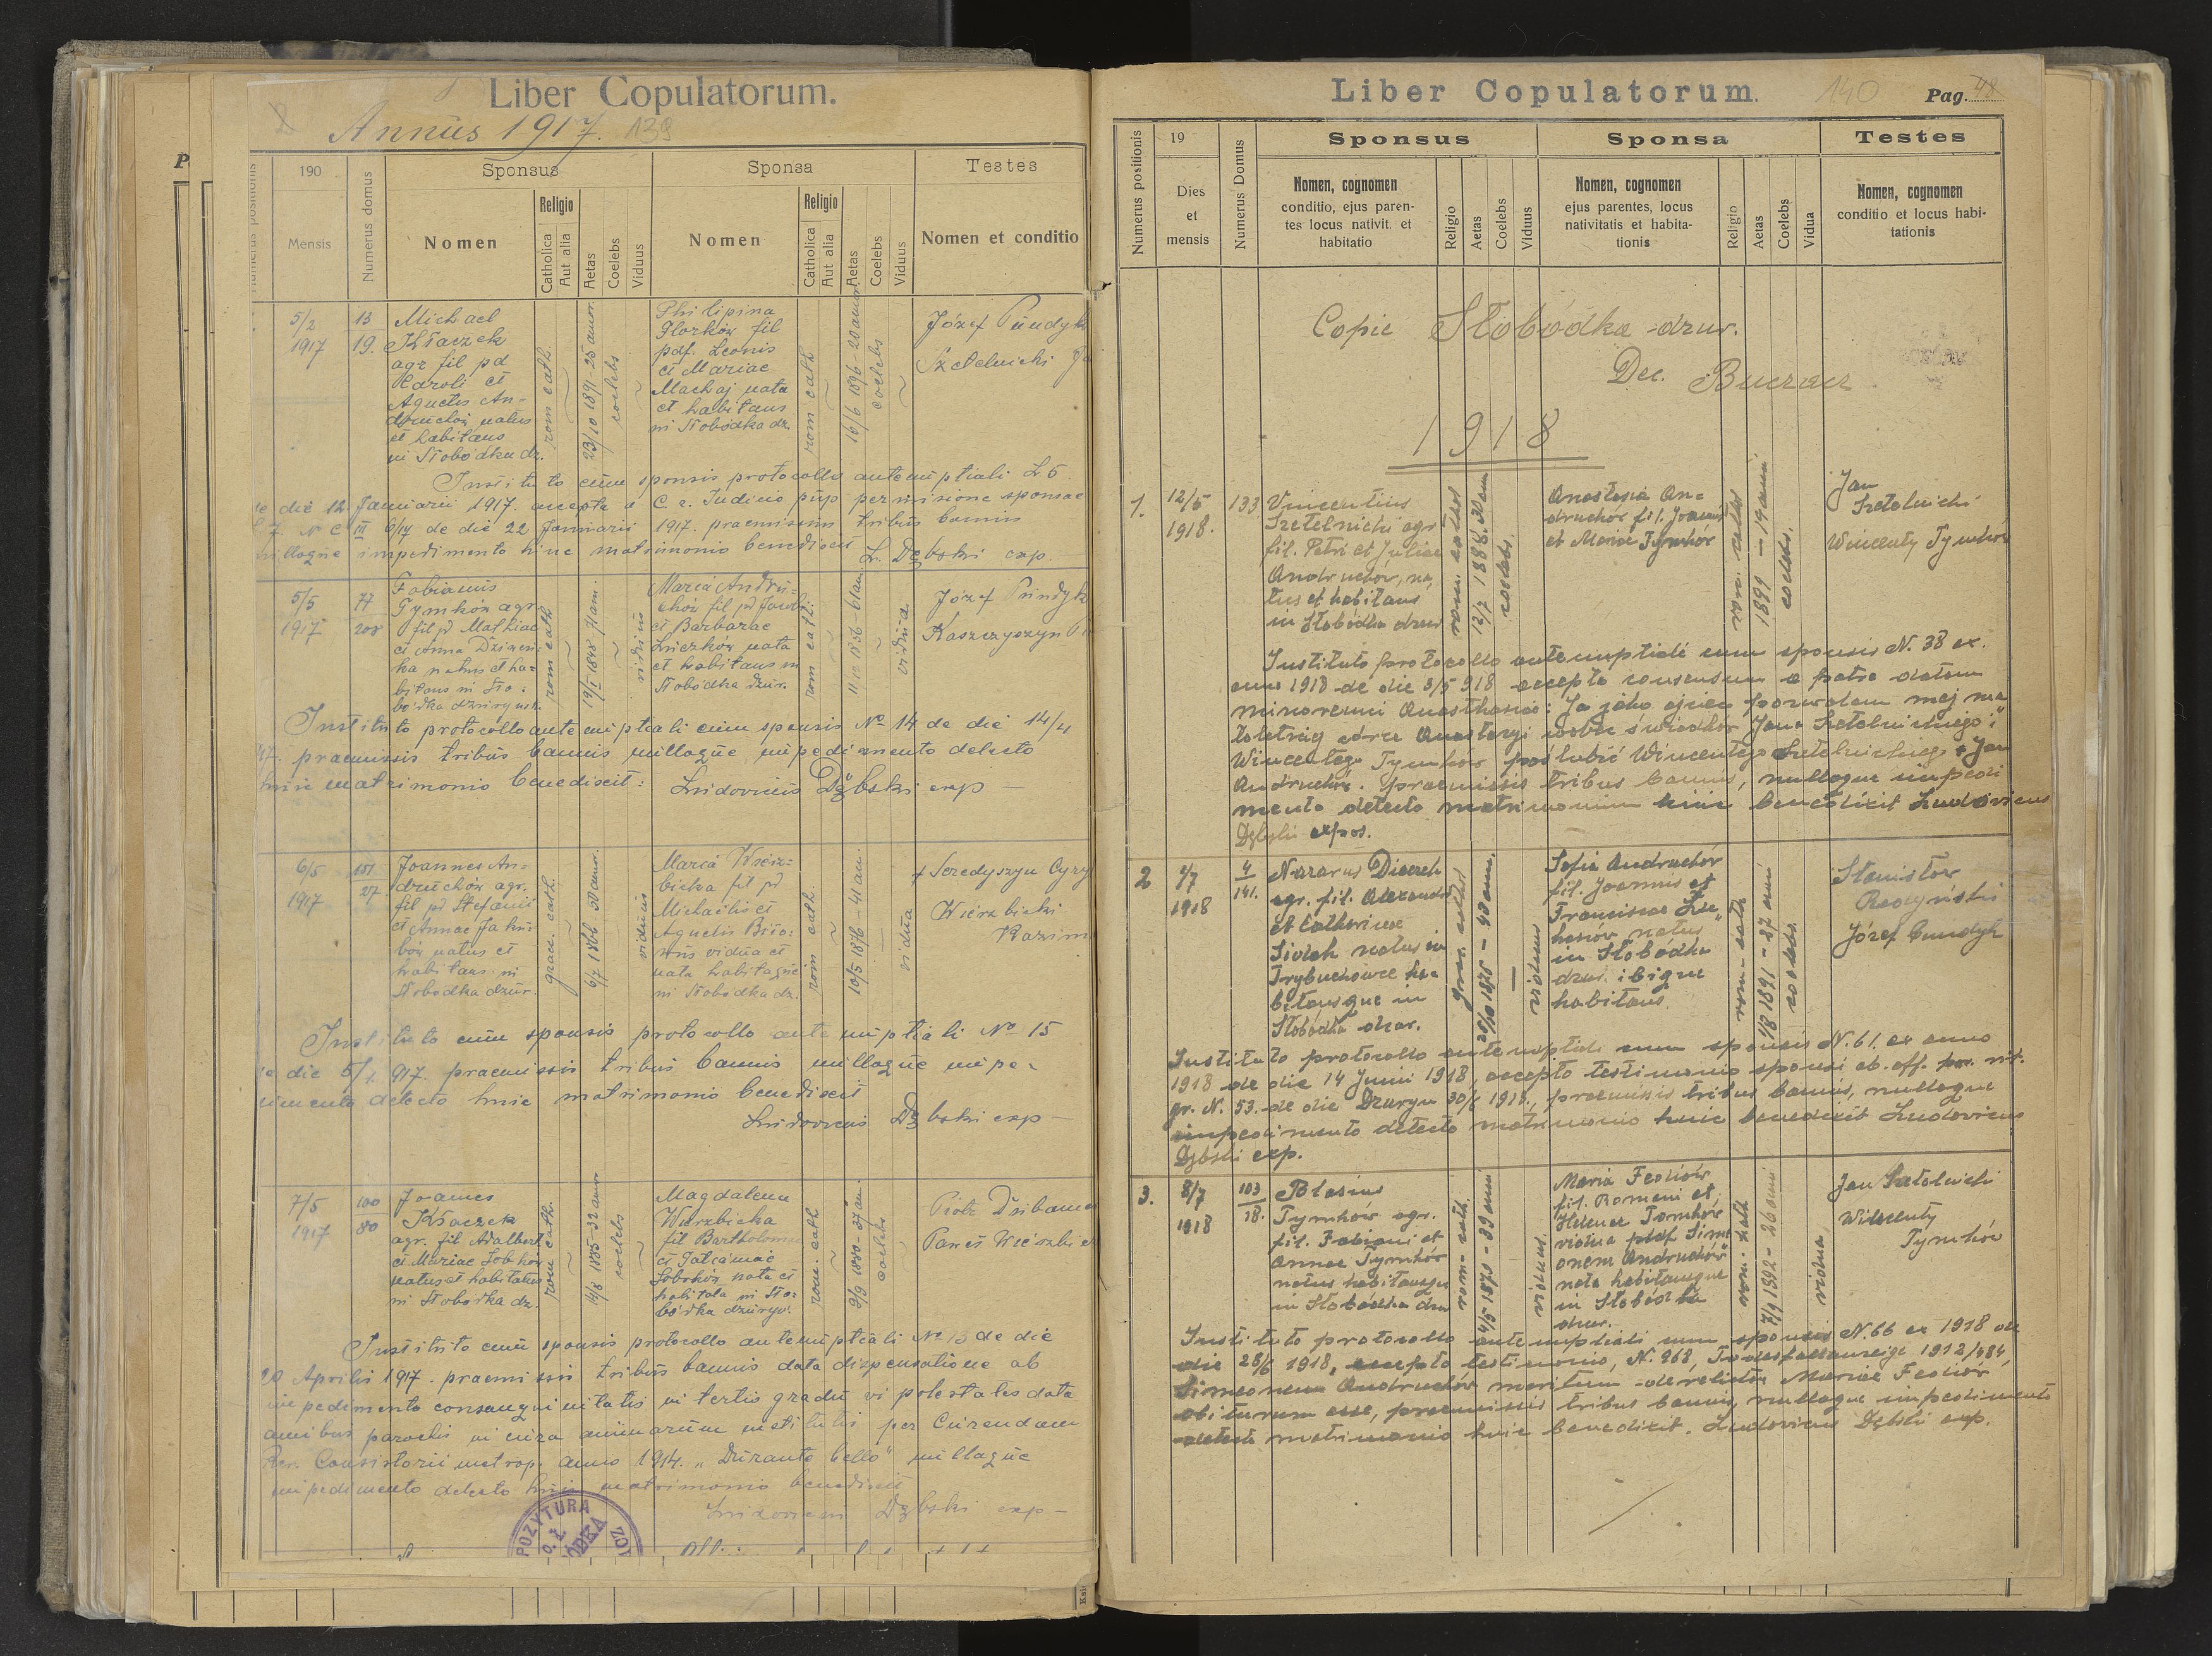 Liber Copulatorum.
Annus 1917. 139
Numerus positionis
190
Mensis
Numerus domus
Sponsus
Nomen
Religio
Catholica
Aut alia
Aetas
Coelebs
Viduus
Sponsa
Nomen
Religio
Catholica
Aut alia
Aetas
Coelebs
Viduus
Testes
Nomen et conditio
5/2
1917
13
19.
Michael
Kłaczek
agr fil pd
Caroli et
Agnetis An=
druchów natus
et habitans
in Słobódka dz.
rom cath.
23/10 1891 - 25 annor.
coelebs
Philipina
fil
pdf. Leonis
et Mariae
Machaj nata
et habitans
in Słobódka dz
rom cath
16/6 1896 - 20 annor
coelebs
Józef
Szetelnicki
Instituto cum sponsis protocollo antenuptiali L. 5
de die 12 Januarii 1917. accepta a C. r. Judicio pup permisione sponsae
6/17 de die 22 Januarii 1917. praemissis tribus bannis
nullaque impedimento hinc matrimonio benedixit L. Dębski exp.
5/5
1917
77
208
Fabianus
Tymków agr
fil pd Mathiae
et Anna
natus et ha=
bitans in Sło=
bódka dzuryńsk.
rom cath
19/1 1848 71 ann.
viduus
Maria Andru=
chów fil pd Jacobi
et Barbarae
nata
et habitans in
Słobódka dzur.
rom cath.
1856 - 61 an.
vidua
Józef
Kaszczyszyn
Instituto protocollo antenuptiali cum sponsis No 14 de die 14/4
praemissis tribus bannis nullaque impedimento detecto
huic matrimonio benedixit: Ludovicus Dębski exp
6/5
1917
151
27
Joannes An=
druchów agr.
fil pd Stefani
et Annae Jaku=
bów natus et
habitans in
Słobodka dzur.
graec. cath.
6/7 1866 50 annor.
viduus
Maria Wierz=
bicka fil pd
Michaelis et
Agnetis
vidua et
nata habitaque
in Słobódka dz.
rom cath.
10/5 1876 - 41 an.
vidua
+ Seredyszyn
Wierzbicki
Kazim
Instituto cum sponsis protocollo antenuptiali No 15
de die 5/5 917. praemissis tribus bannis nullaque impe=
dimento detecto huic matrimonio benedixit
Ludovicus Dębski exp
7/5
1917
100
80
Joannes
Kłaczek
agr. fil Adalberti
et Mariae Sobków
natus et habitans
in Słobódka dz.
rom cath.
14/8 1885 - 32 annor
coelebs
Magdalena
Wierzbicka
fil Bartholomei
et
Sobków nata et
habitata in Sło=
bódka dzuryń.
rom. cath
9/9 1880 - 37 an.
coelebs
Piotr
Paweł Wierzbicki
Instituto cum sponsis protocollo antenuptiali No 13 de die
20 Aprilis 1917. praemissis tribus bannis data dispensatione ab
impedimento consanguinitatis in tertio gradu vi potestatis data
omnibus parochis in cura animarum institutis per Currendam
Rev. Consistorii metrop. anno 1914. „Durante bello" nullaque
impedimento detecto huic matrimonio benedixit
Ludovicus Dębski exp
Liber Copulatorum.
140
Pag. 48
Numerus positionis
19
Dies
et
mensis
Numerus Domus
Sponsus
Nomen, cognomen
conditio, ejus paren-
tes locus nativit. et
habitatio
Religio
Aetas
Coelebs
Viduus
Sponsa
Nomen, cognomen
ejus parentes, locus
nativitatis et habita-
tionis
Religio
Aetas
Coelebs
Vidua
Testes
Nomen, cognomen
conditio et locus habi-
tationis
Copie Słobódka dzur.
Dec. Buczacz
1918
1.
12/5
1918.
133
Vincentius
Szetelnicki agr
fil. Petri et Juliae
Andruchów, na
tus et habitans
in Słobódka dzur
rom. cathol
12/7 1888. 30 ann
coelebs.
Anastasia An=
druchów fil. Joannis
et Maria Tymków
rom. cathol
1899 - 19 anni
coelebs.
Jan
Szetelnicki
Wincenty Tymków
Instituto protocollo antenuptiali cum sponsis N. 38 ex
anno 1918 de die 3/5 918 accepto consensum a patre datum
minorenni Anasthasiae: Ja jako ojciec pozwalam mej ma
łoletniej córce Anastazyi wobec świadków Jana Szetelnickiego i
Wincentego Tymków poślubić Wincentego Szetelnickiego + Jan
Andruchów. praemissis tribus bannis, nullaque impedi
mento detecto matrimonium huic benedixit Ludovicus
Dębski expos.
2
4/7
1918
4
141.
Nazarus Diaczek
agr. fil. Alexandri
et Catharinae
natus in
Trybuchowce ha=
bitansque in
Słobódka dzur.
graec. cathol
1875 - 43 ann.
viduus
Sofia Andruchów
fil. Joannis et
Franciscae
natus
in Słobódka
dzur. ibique
habitans.
rom - cath
1891 - 27 anni
coelebs.
Stanisław
Józef
Instituto protocollo antenuptiali cum sponsis N. 61. ex anno
1918 de die 14 Junii 1918, accepto testimonio sponsi ab off. par. rit.
gr. N. 53. de die Dzuryn 30/6 1918, praemissis tribus bannis, nullaque
impedimento detecto matrimonio huic benedixit Ludovicus
Dębski exp.
3.
8/7
1918
103
18.
Blasius
Tymków agr.
fil. Fabiani et
Annae Tymków
natus habitansque
in Słobódka dzur
rom - cath.
viduus.
Maria Fediów
fil. Romani et
Helenae Tomków
vidua pdf. Sim
onem Andruchów
nata habitansque
in Słobódka
dzur.
rom. kath
7/9 1892 - 26 anni
vidua
Jan Szetelnicki
Wincenty
Tymków
Instituto protocollo antenuptiali cum sponsis N. 66 ex 1918 de
die 28/6 1918, accepto testimonio, N. 968, Todesfallanzeige 1912/484,
Simeonem Andruchów maritum derelictae Mariae Fediów
obiturum esse, praemissis tribus bannis, nullaque impedimento
detecto matrimonio huic benedixit. Ludovicus Dębski exp.